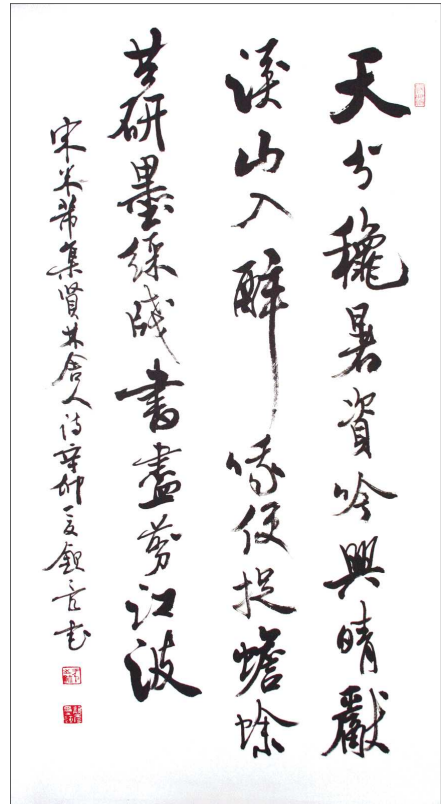 天分穠暑資吟興晴獻
溪山入醉哦便捉蟾蜍
共研墨綵牋書盡剪江波
宋米芾集賢林舍人詩